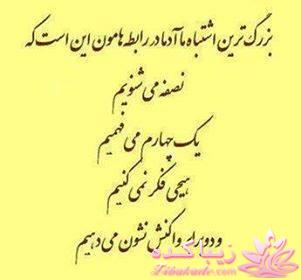 بزرگ ترین اشتباه ما آدما در رابطه هامون این است که
نصفه می شنویم
یک چهارم می فهمیم
هیچی فکر نمی کنیم
و دو برابر واکنش نشون می دهیم
زیباکده
Zibakade.com